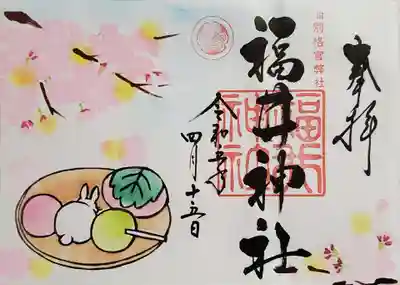 奉拝
旧別格官幣社
福井神社
令和五年
四月十五日